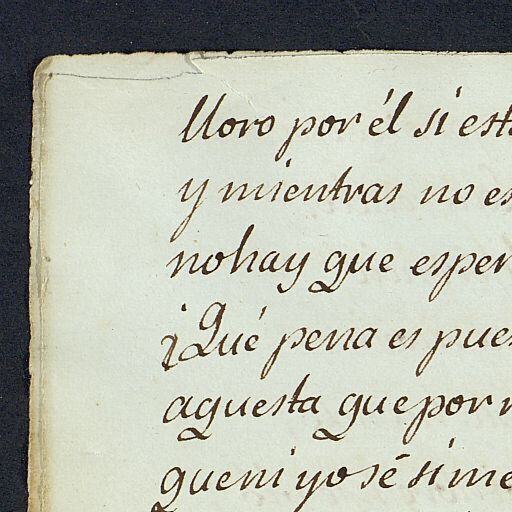 lloro por él si est
y mientras no es
no hay que esper
¿Qué pena es pues
aquesta que por
que ni yo sé si me